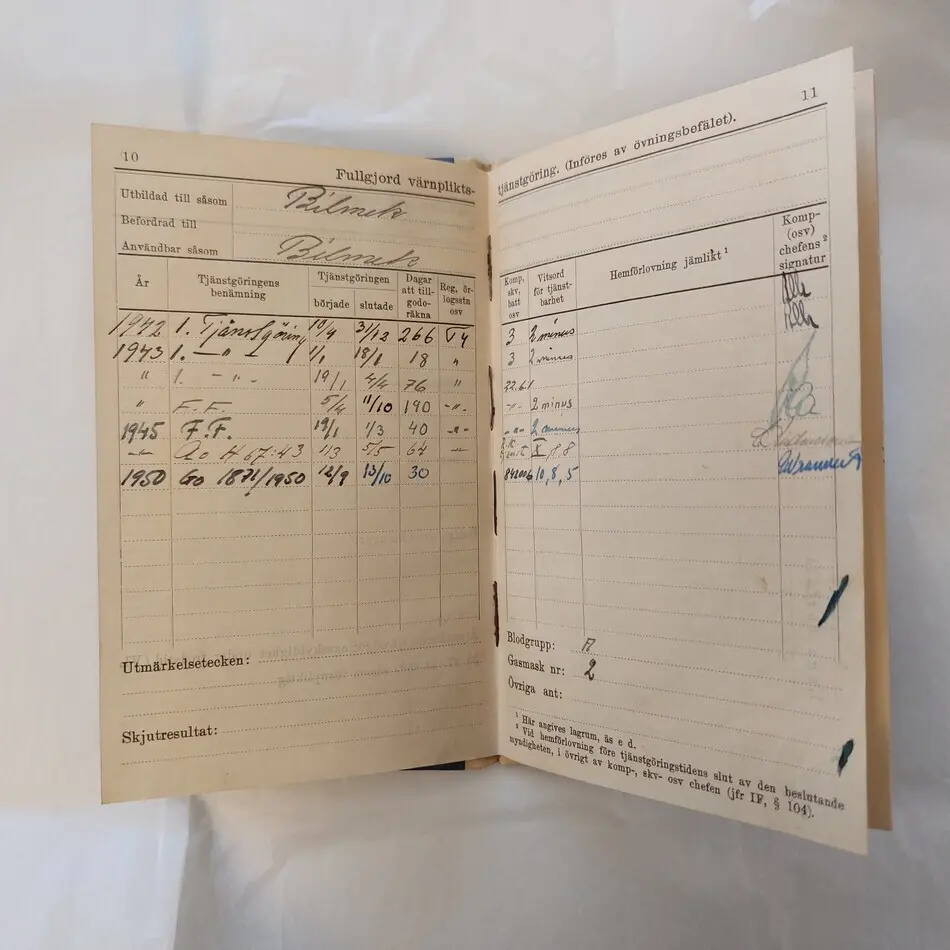 10
Fullgjord värnplikts-
Utbildad till såsom Bilmek
Befordrad till
Användbar såsom Bilmek
År Tjänstgöringens benämning Tjänstgöringen började slutade Dagar att till-godo-räkna Reg, ör-logsstn osv
1942 1. Tjänstgöring 10/4 31/12 266 T4
1943 1. — " — 1/1 18/1 18 "
" 1. — " — 19/1 4/4 76 "
" F.F. 5/4 11/10 190 -"-
1945 F.F. 19/1 1/3 40 -"-
-"- Ao H 67:43 1/3 5/5 64 -"-
1950 Go 1871/1950 12/9 13/10 30
Utmärkelsetecken:
Skjutresultat:
11
tjänstgöring. (Införes av övningsbefälet).
Komp, skv, batt osv Vitsord för tjänst-barhet Hemförlovning jämlikt ¹ Komp- (osv) chefens ² signatur
3 2 minus
3 2 minus
-"- 2 minus
-"- 2 minus
10, 8, 5
Blodgrupp: A
Gasmask nr: 2
Övriga ant:
¹ Här angives lagrum, äs e d.
² Vid hemförlovning före tjänstgöringstidens slut av den beslutande
myndigheten, i övrigt av komp-, skv- osv chefen (jfr IF, § 104).